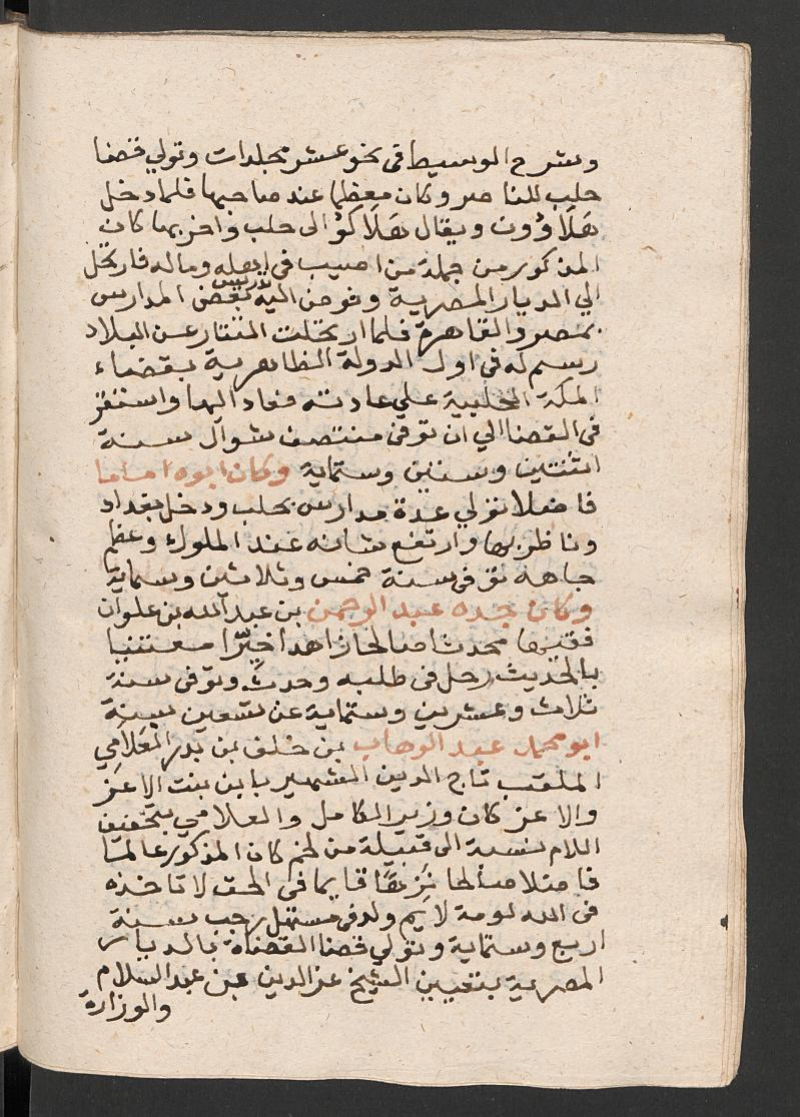 وشرح الوسيط فى نحو عشر مجلدات وتولي قضا
حلب للناصر وكان معظما عند صاحبها فلما دخل
هَلَاوُون ويقال هَلَاكُو الى حلب واخربها كان
المذكور من جملة من اصيب فى اهله وماله فارتحل
الي الديار المصرية وفوض اليه تدريس بعض المدارس
بمصر والقاهرة فلما ارتحلت التتار عن البلاد
رسم له فى اول الدولة الظاهرية بقضاء
المملكة الحلبية علي عادته فعاد اليها واستقر
فى القضا الي ان توفى منتصف شوال سنة
اثنتين وستين وستماية وكان ابوه اماما
فاضلا تولي عدة مدارس بحلب ودخل بغداد
وناظر بها وارتفع شانه عند الملوك وعظم
جاهه توفى سنة خمس وثلاثين وستماية
وكان جده عبد الرحمن بن عبد الله بن علوان
فقيها محدثا صالحا زاهدا خيّرا معتنيا
بالحديث رحل فى طلبه وحدث وتوفى سنة
ثلاث وعشرين وستماية عن تسعين سنة
ابو محمد عبد الوهاب بن خلف بن بدر العَلَامِي
الملقب تاج الدين الشهير بابن بنت الاعَز
والاعز كان وزير الكامل والعلامي بتخفيف
اللام نسبة الى قبيلة من لخم كان المذكور عالما
فاضلا صالحا نَزِهًا قايما فى الحق لا تاخذه
فى الله لومة لايم ولد فى مستهل رجب سنة
اربع وستماية وتولي قضا القضاة بالديار
المصرية بتعيين الشيخ عز الدين بن عبد السلام
والوزارة